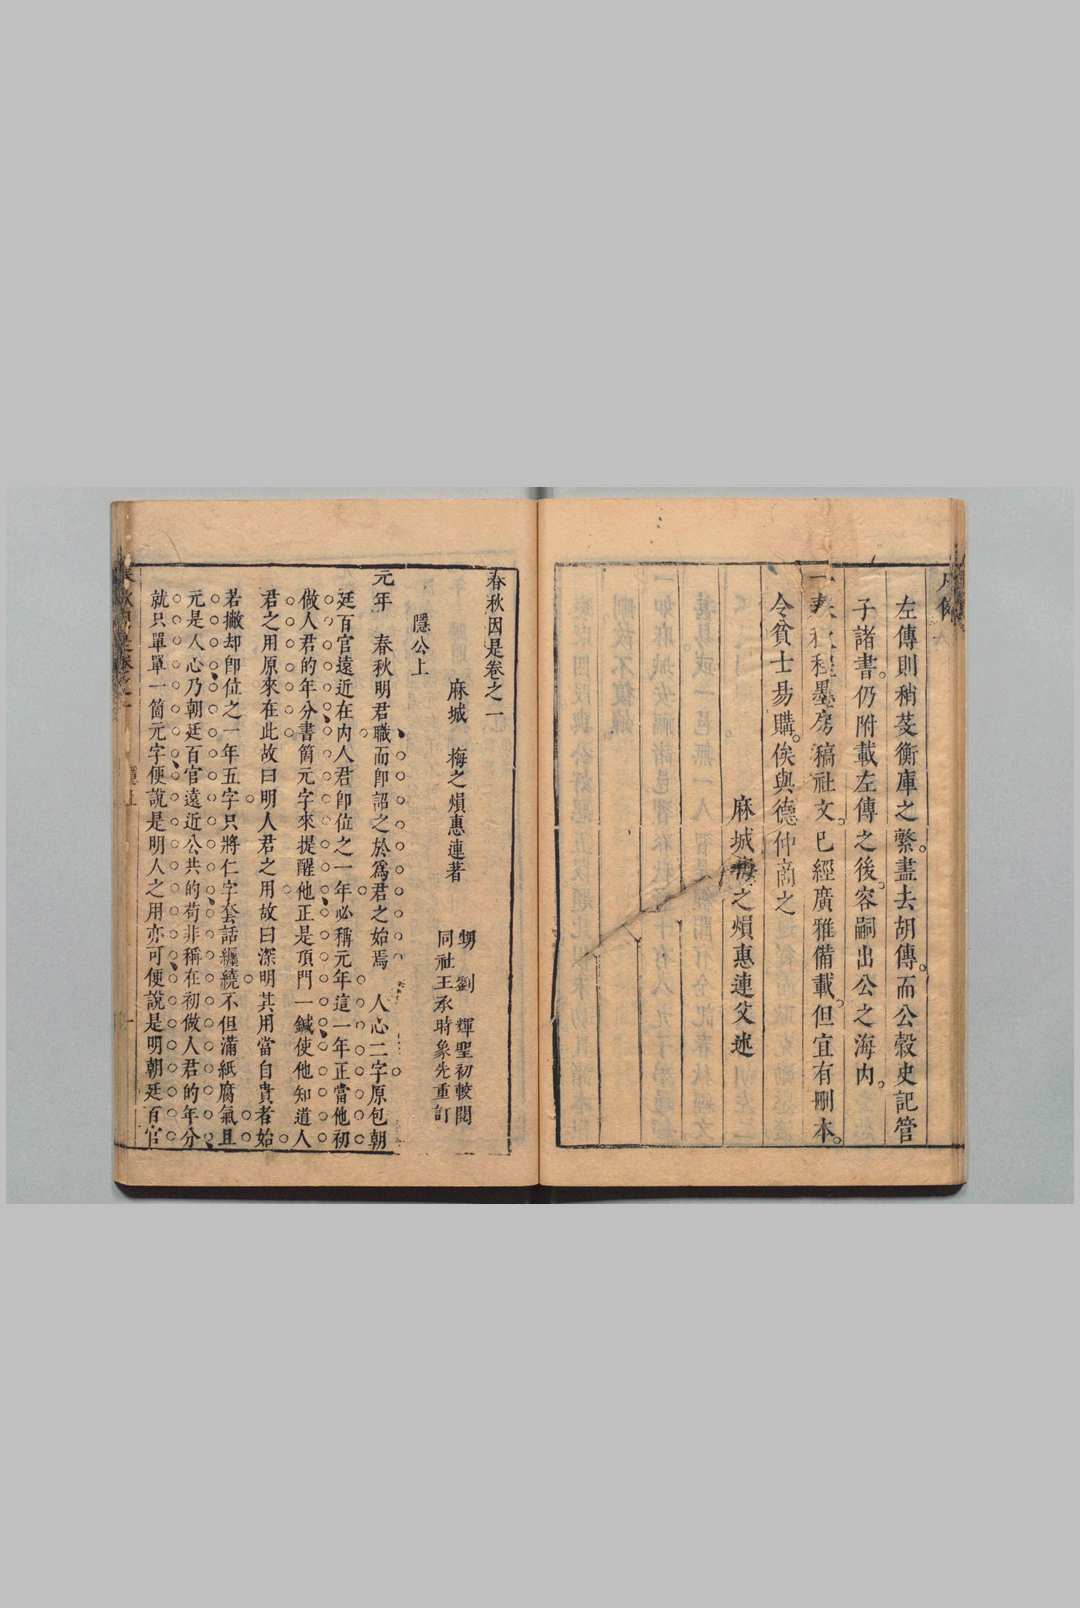 凡例
左傳則稍芟衡庫之繁。盡去胡傳。而公穀史記管
子諸書。仍附載左傳之後。容嗣出公之海內。
一春秋程墨房稿社文。已經廣雅備載。但宜有刪本。
令貧士易購。俟與德仲商之
麻城梅之熉惠連父述
春秋因是卷之一
麻城 梅之熉惠連著
甥 劉 輝聖初較閱
同社王承時象先重訂
隱公上
元年 春秋明君職而卽詔之於爲君之始焉 人心二字原包朝
廷百官遠近在內人君卽位之一年必稱元年這一年正當他初
做人君的年分書箇元字來提醒他正是項門一鍼使他知道人
君之用原來在此故曰明人君之用故曰深明其用當自貴者始
若撇却卽位之一年五字只將仁字套話纏繞不但滿紙腐氣且
元是人心乃朝廷百官遠近公共的苟非稱在初做人君的年分
就只單單一箇元字便說是明人之用亦可便說是明朝廷百官